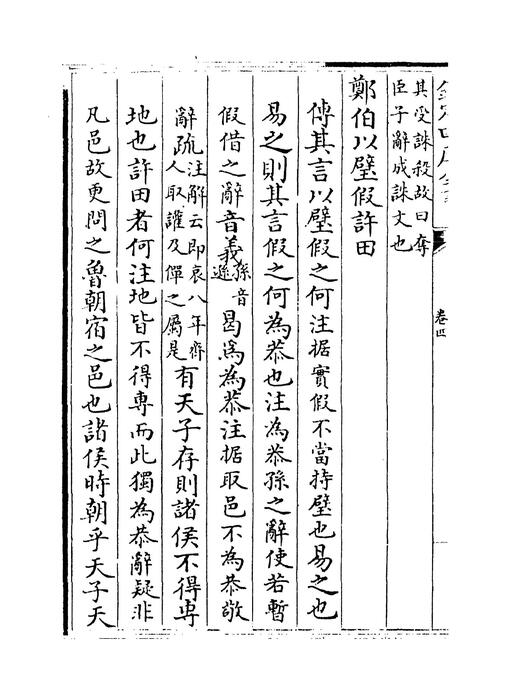 其受誅殺故曰奪
臣子辭成誅文也
卷四
鄭伯以璧假許田
傳其言以璧假之何注据實假不當持璧也易之也
易之則其言假之何為恭也注為恭孫之辭使若暫
假借之辭音義孫音遜曷為為恭注据取邑不為恭敬
辭疏注解云即哀八年齊人取讙及僤之屬是有天子存則諸侯不得専
地也許田者何注地皆不得專而此獨為恭辭疑非
凡邑故更問之魯朝宿之邑也諸侯時朝乎天子天